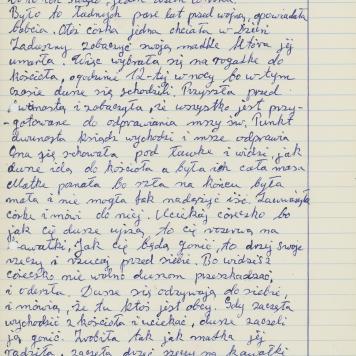 Było to ładnych parę lat przed wojną, opowiadała
babcia. Otóż córka jedna chciała w Dzień
Zaduszny zobaczyć swoją matkę która jej
umarła. Więc wybrała się na pogadkę do
kościoła, o godzinie 12-tej w nocy bo w tym
czasie dusze się schodzili. Przyszła przed
północą i zobaczyła, że wszystko jest przy-
-gotowane do odprawiania mszy św. Punkt
dwunasta ksiądz wychodzi i mszę odprawia
Ona się schowała pod ławkę i widzi jak
dusze idą do kościoła a była ich cała masa
Matkę poznała bo szła na końcu była
mała i nie mogła tak nadążyć iść. Zauważyła
córkę i mówi do niej. Uciekaj córeczko bo
jak cię dusze ujrzą, to cię rozerwą na
kawałki, Jak cię będą gonić, to drzyj swoje
rzeczy i rzucaj przed siebie. Bo widzisz
córeczko nie wolno duszom przeszkadzać,
i odeszła. Dusze się odzywają do siebie,
i mówią, że tu ktoś jest obcy. Gdy zaczęła
wychodzić z kościoła i uciekać, dusze zaczęli
ją gonić. Zrobiła tak jak matka jej
radziła, zaczęła drzeć rzeczy na kawałki